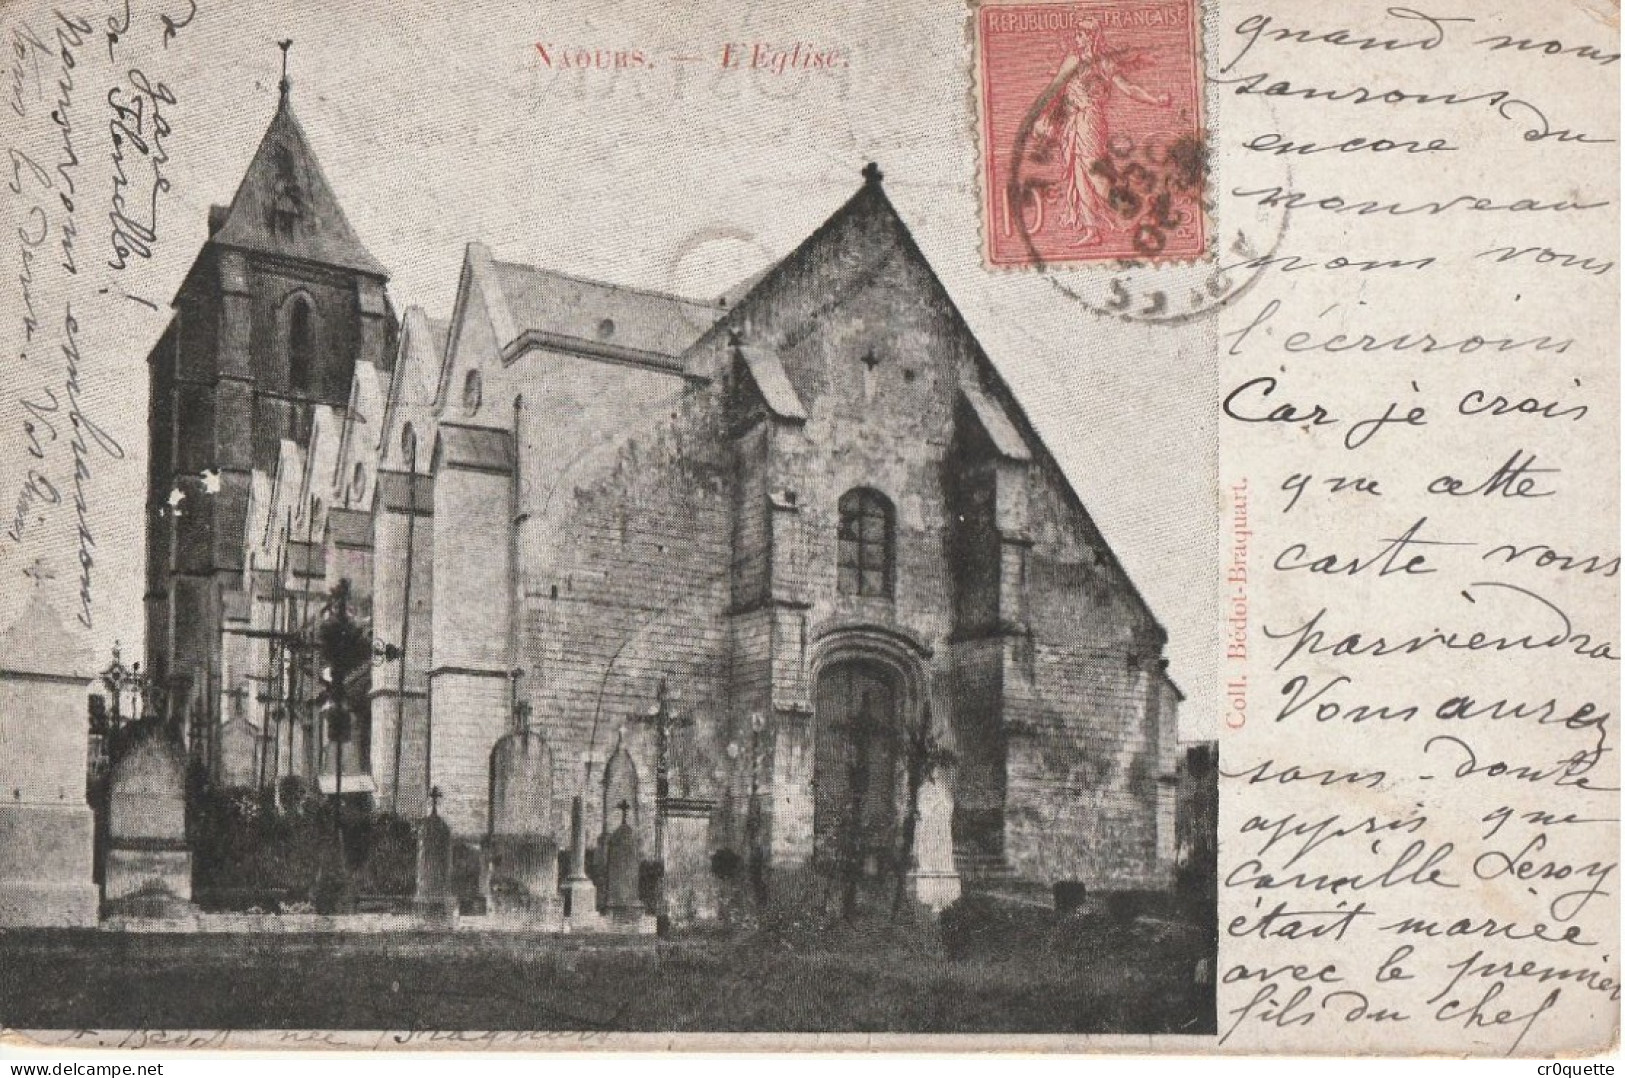 NAOURS. — L'Eglise.
REPUBLIQUE FRANÇAISE
10
quand nous
saurons du
encore
nouveau
nous vous
l'écrirons
Car je crois
que cette
carte vous
parviendra
Vous aurez
sans-doute
appris que
Camille Leroy
était mariée
avec le premier
fils du chef
de gare
de Flesselles!
Nous vous embrassons
tous les deux. Vos amis,
Coll. Bédot-Braquart.
A. Bédot née Braquart
cr0quette